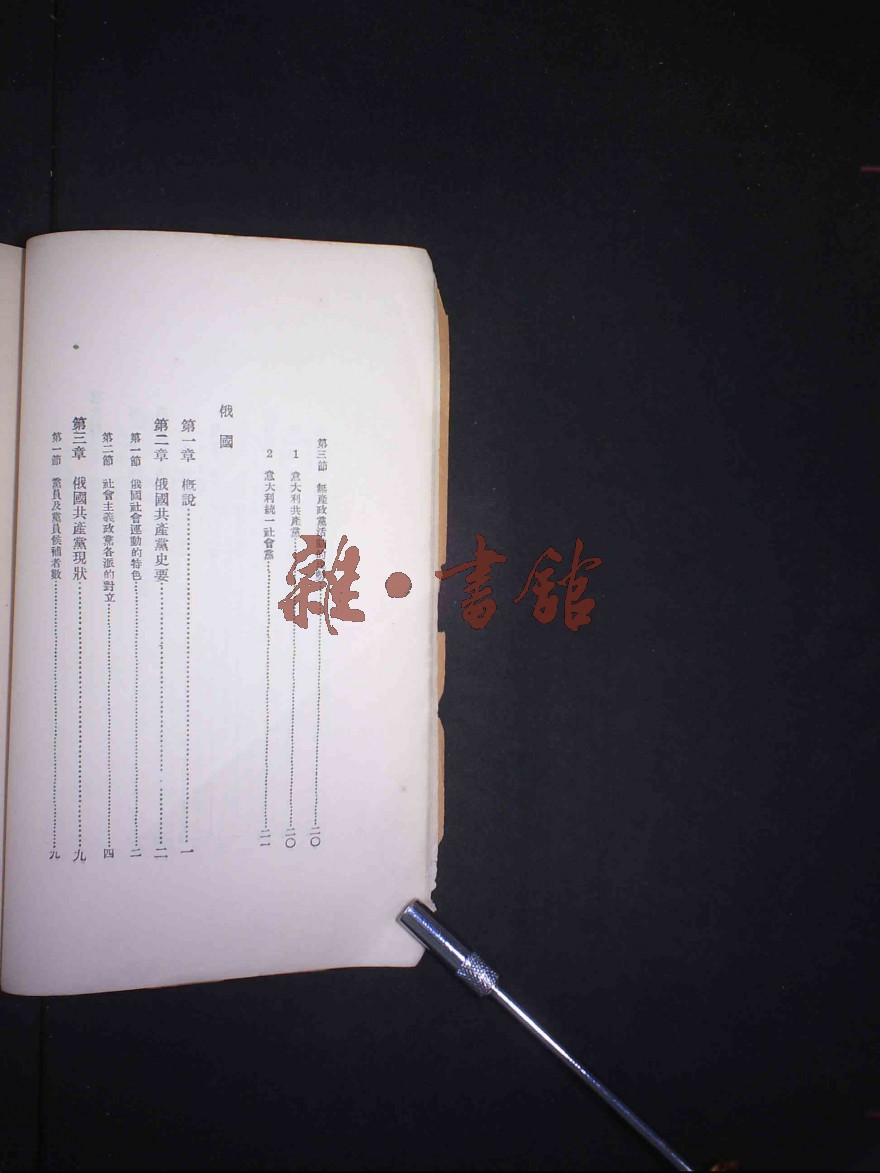 第三節 無產政黨活動……二〇
1 意大利共產黨……二〇
2 意大利統一社會黨……二一
俄國
第一章 概說……一
第二章 俄國共產黨史要……二
第一節 俄國社會運動的特色……二
第二節 社會主義政黨各派的對立……四
第三章 俄國共產黨現狀……九
第一節 黨員及黨員候補者數……九
雜·書館